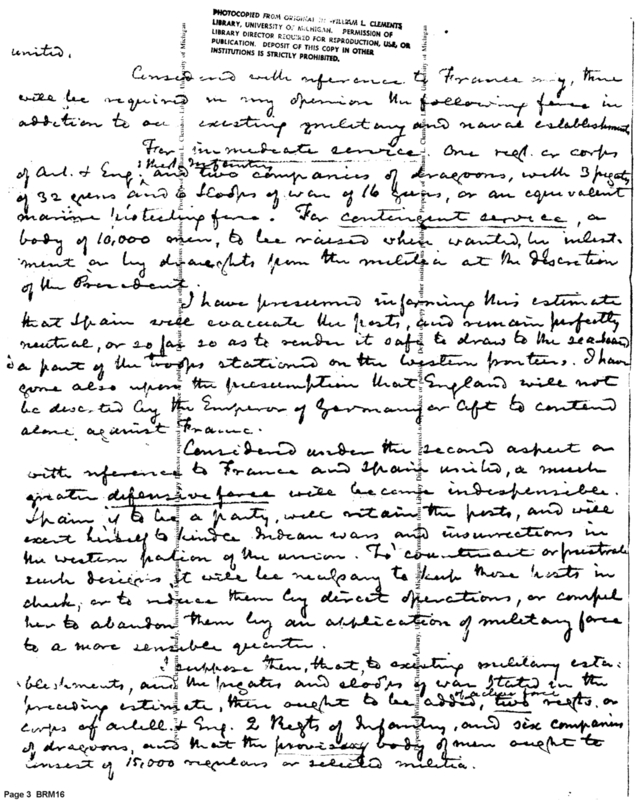 PHOTOCOPIED FROM ORIGINAL IN WILLIAM L. CLEMENTS
LIBRARY, UNIVERSITY OF MICHIGAN. PERMISSION OF
LIBRARY DIRECTOR REQUIRED FOR REPRODUCTION, USE, OR
PUBLICATION. DEPOSIT OF THIS COPY IN OTHER
INSTITUTIONS IS STRICTLY PROHIBITED.
united.
Considered with reference to France only, there
will be required in my opinion the following force in
addiction to our existing military and naval establishment
For immediate service. One regt. or corps
of Art. & Eng. and two companies of dragoons, with 3 frigates
of 32 guns and 6 Sloops of war of 16 guns, or an equivalent
marine protecting force. For contingent service, a
body of 10,000 men, to be raised when wanted, by inlist-
ment or by draughts from the militia at the discretion
of the President.
I have presumed in forming this estimate
that Spain will evacuate the posts, and remain perfectly
neutral, or so far so as to render it safe to draw to the sea-board
a part of the troops stationed on the western frontiers. I have
gone also upon the presumption that England will not
be deserted by the Emperor of Germany or left to contend
alone against France.
Considered under the second aspect or
with reference to France and Spain united, a much
greater defensive force will become indispensible.
Spain if to be a party, will retain the posts, and will
exert himself to kindle Indian wars and insurrections in
the western portion of the union. To counteract or frustrate
such designs, it will be necessary to keep those posts in
check, or to reduce them by direct operations, or compel
her to abandon them by an application of military force
to a more sensible quarter.
I suppose then, that, to existing military esta-
blishments, and the frigates and sloops of war stated in the
preceding estimate, there ought to be added, of active force two regts. or
corps of artill. & Eng. 2 Regts of Infantry, and six companies
of dragoons, and that the provisory body of men ought to
consist of 15,000 regulars or selected militia.
Page 3 BRM16